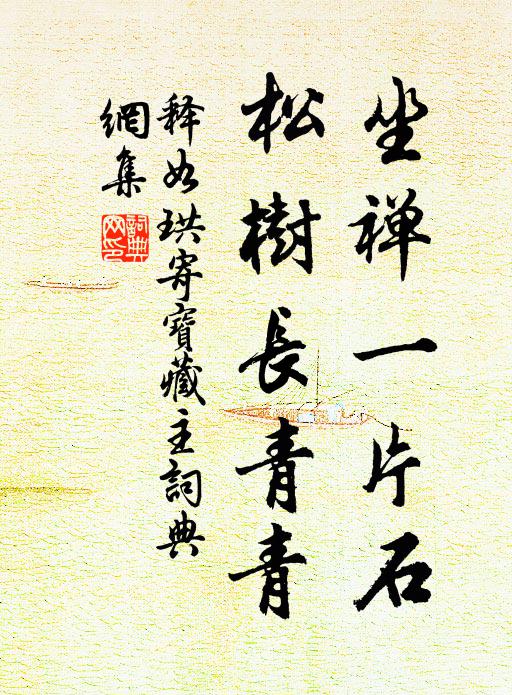 坐禅一片石
松樹長青青
释如珙寄寶藏主詞典
網集
詞典
网印